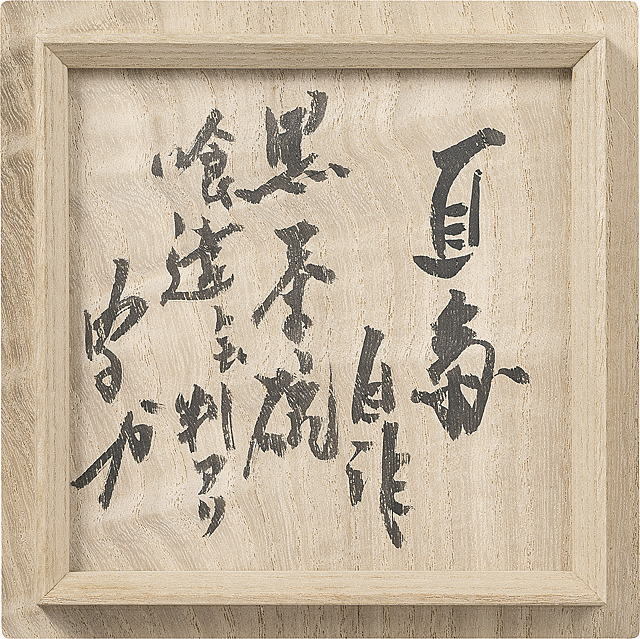 直斎
自作
黒茶碗
喰違ト云
判アリ